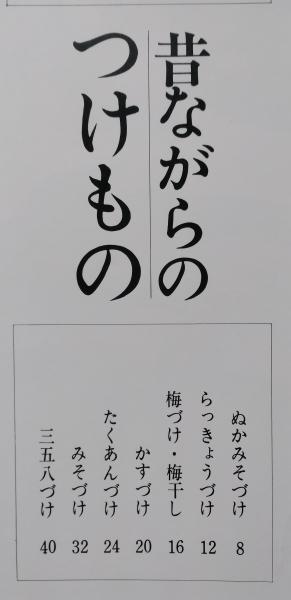 昔ながらの
つけもの
ぬかみそづけ 8
らっきょうづけ 12
梅づけ・梅干し 16
かすづけ 20
たくあんづけ 24
みそづけ 32
三五八づけ 40